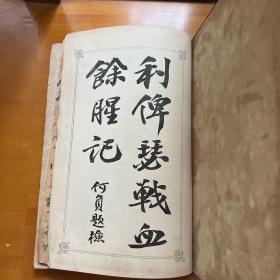 利俾瑟戰血
餘腥記
何負題檢